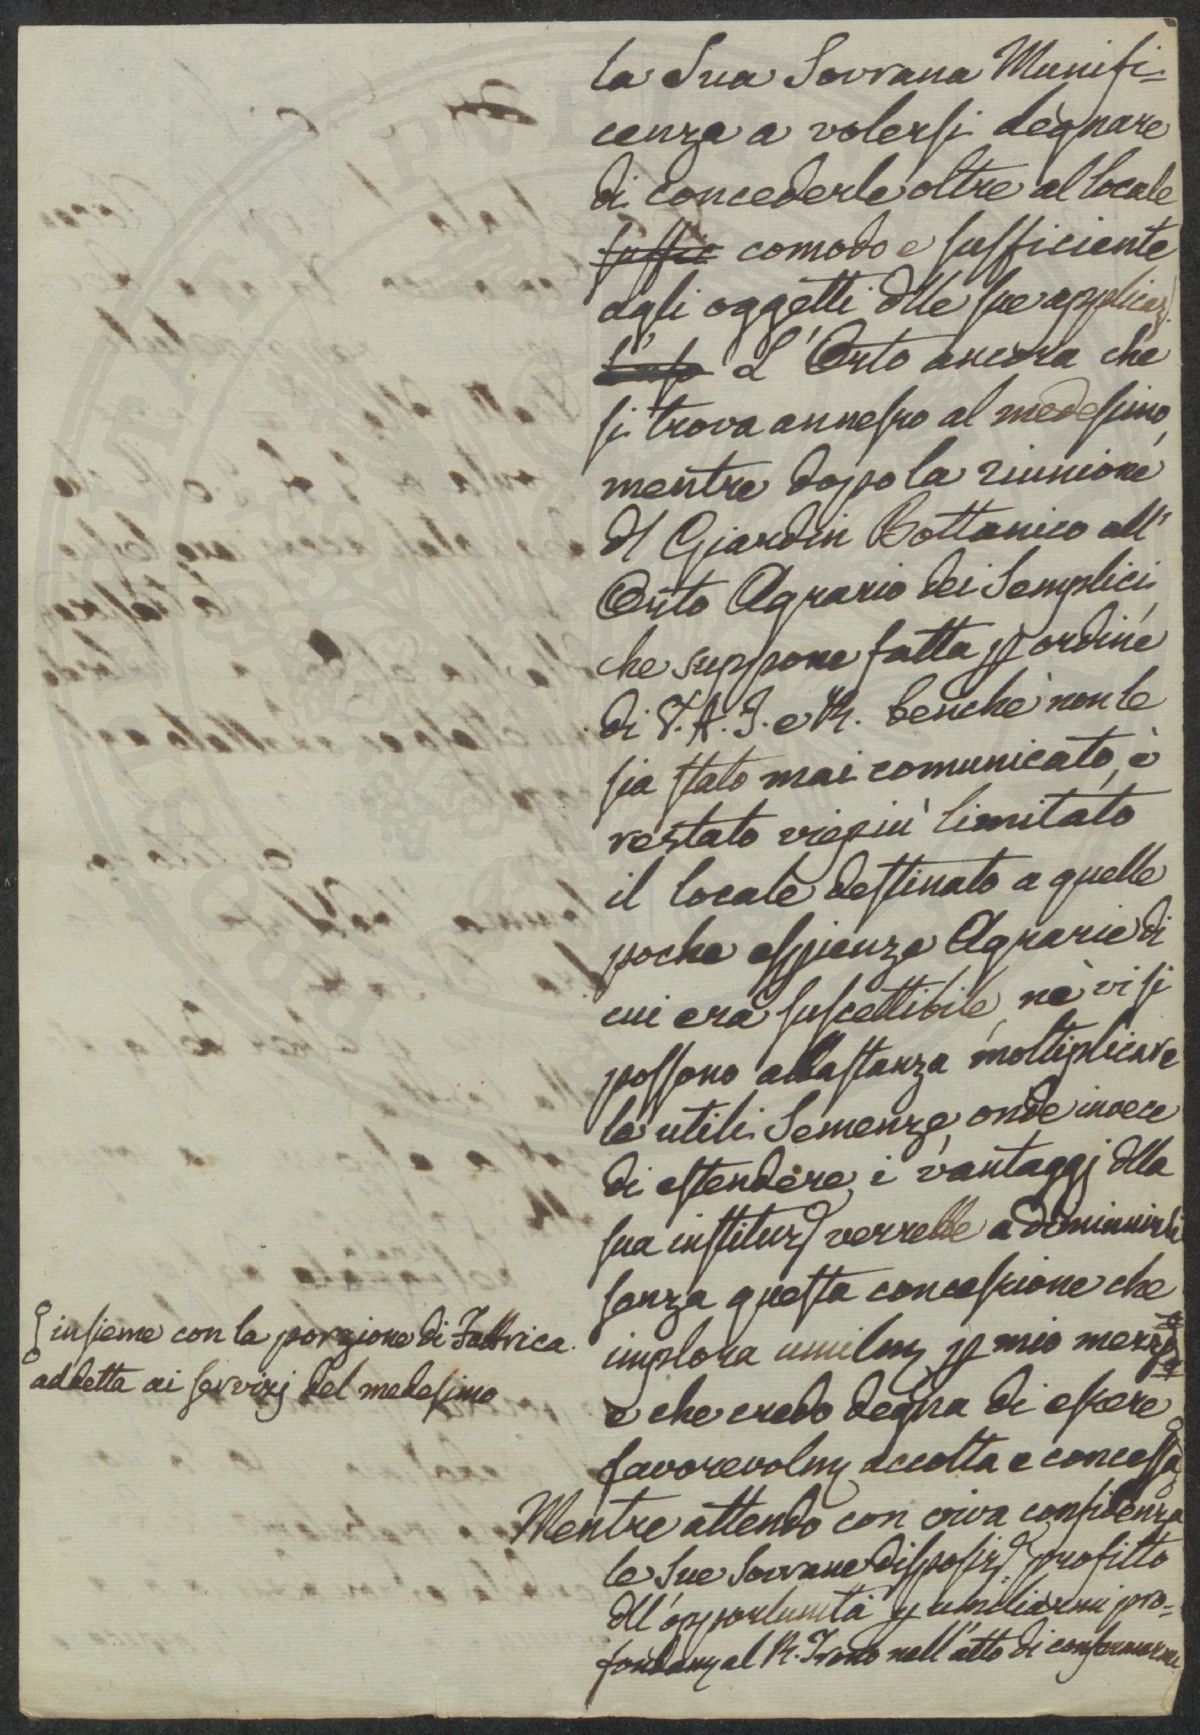 la Sua Sovrana Munifi=
cenza a volersi degnare
di concederle oltre al locale
suffic comodo e sufficiente
agli oggetti dlle sue applicaz.
L' Orto ancora che
si trova annesso al medesimo,
mentre dopo la riunione
dl Giardin Bottanico all'
Orto Agrario dei Semplici
che suppone fatta p ordine
di V. A. I. e R. benchè non le
sia stato mai comunicato, è
restato viepiù limitato
il locale destinato a quelle
poche espienze Agrarie di
cui era suscettibile, nè vi si
possono abbastanza moltiplicare
le utili Semenze, onde invece
di estendere i vantaggj dlla
sua instituz verrebbe a diminuirli
senza questa concessione che
implora umilm p mio mezzo
e che credo degna di essere
favorevolm accolta e concessa
insieme con la porzione di Fabbrica
addetta ai servizj del medesimo
Mentre attendo con viva confidenza
le Sue Sovrane disposiz profitto
dll' opportunità p umiliarmi pro=
fondam al R. Trono nell' atto di confermarmi